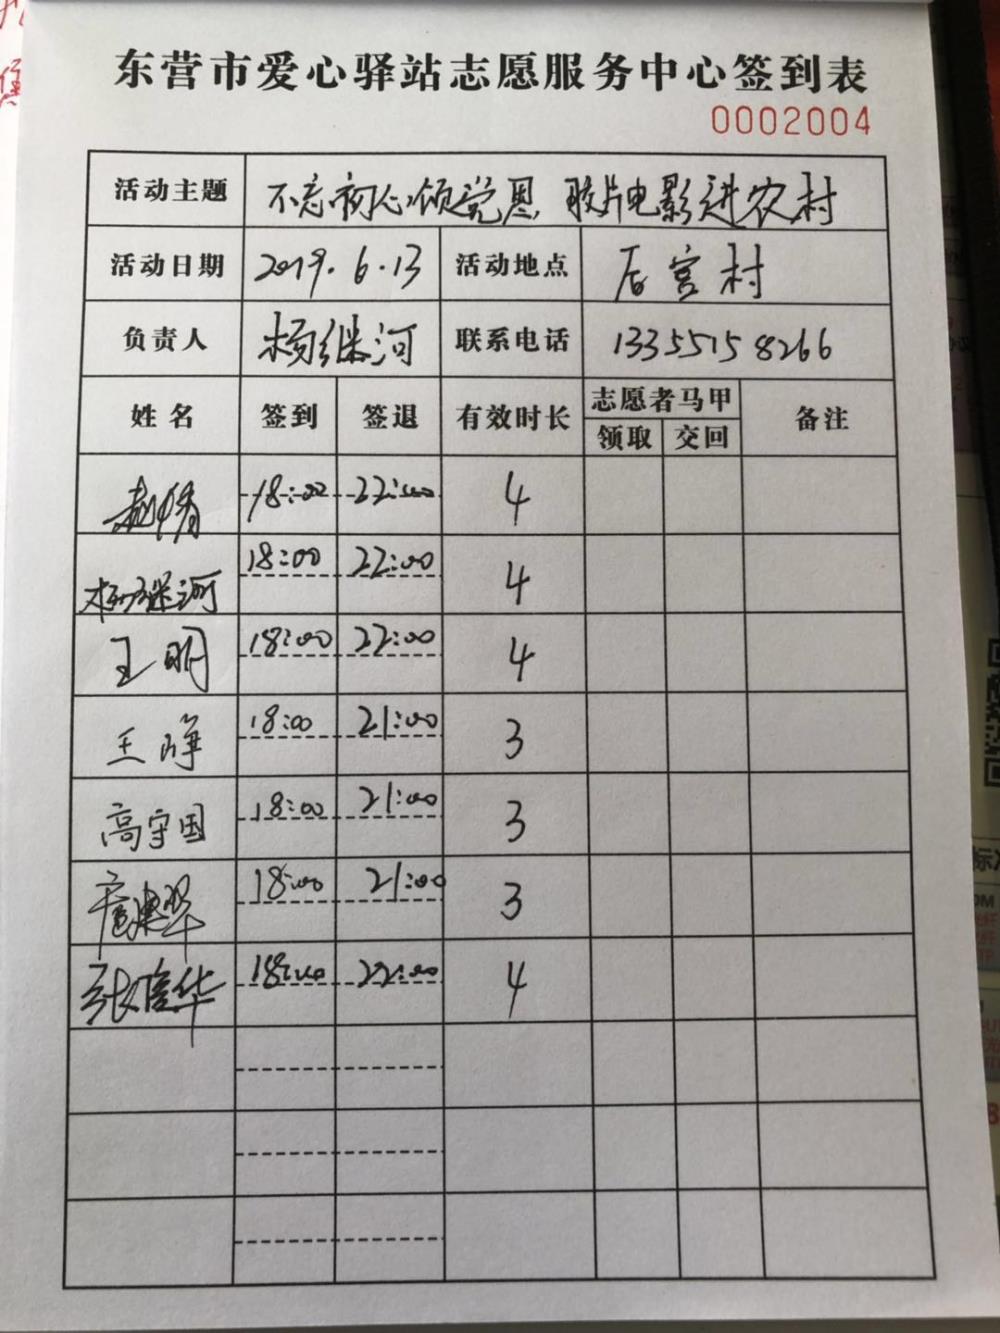 东营市爱心驿站志愿服务中心签到表
0002004
活动主题 不忘初心颂党恩 胶片电影进农村
活动日期 2019.6.13 活动地点 后宫村
负责人 杨继河 联系电话 13355158266
姓名 签到 签退 有效时长 志愿者马甲 备注
领取 交回
18:00 22:00 4
杨继河 18:00 22:00 4
王明 18:00 22:00 4
王峰 18:00 21:00 3
高守国 18:00 21:00 3
18:00 21:00 3
18:00 22:00 4